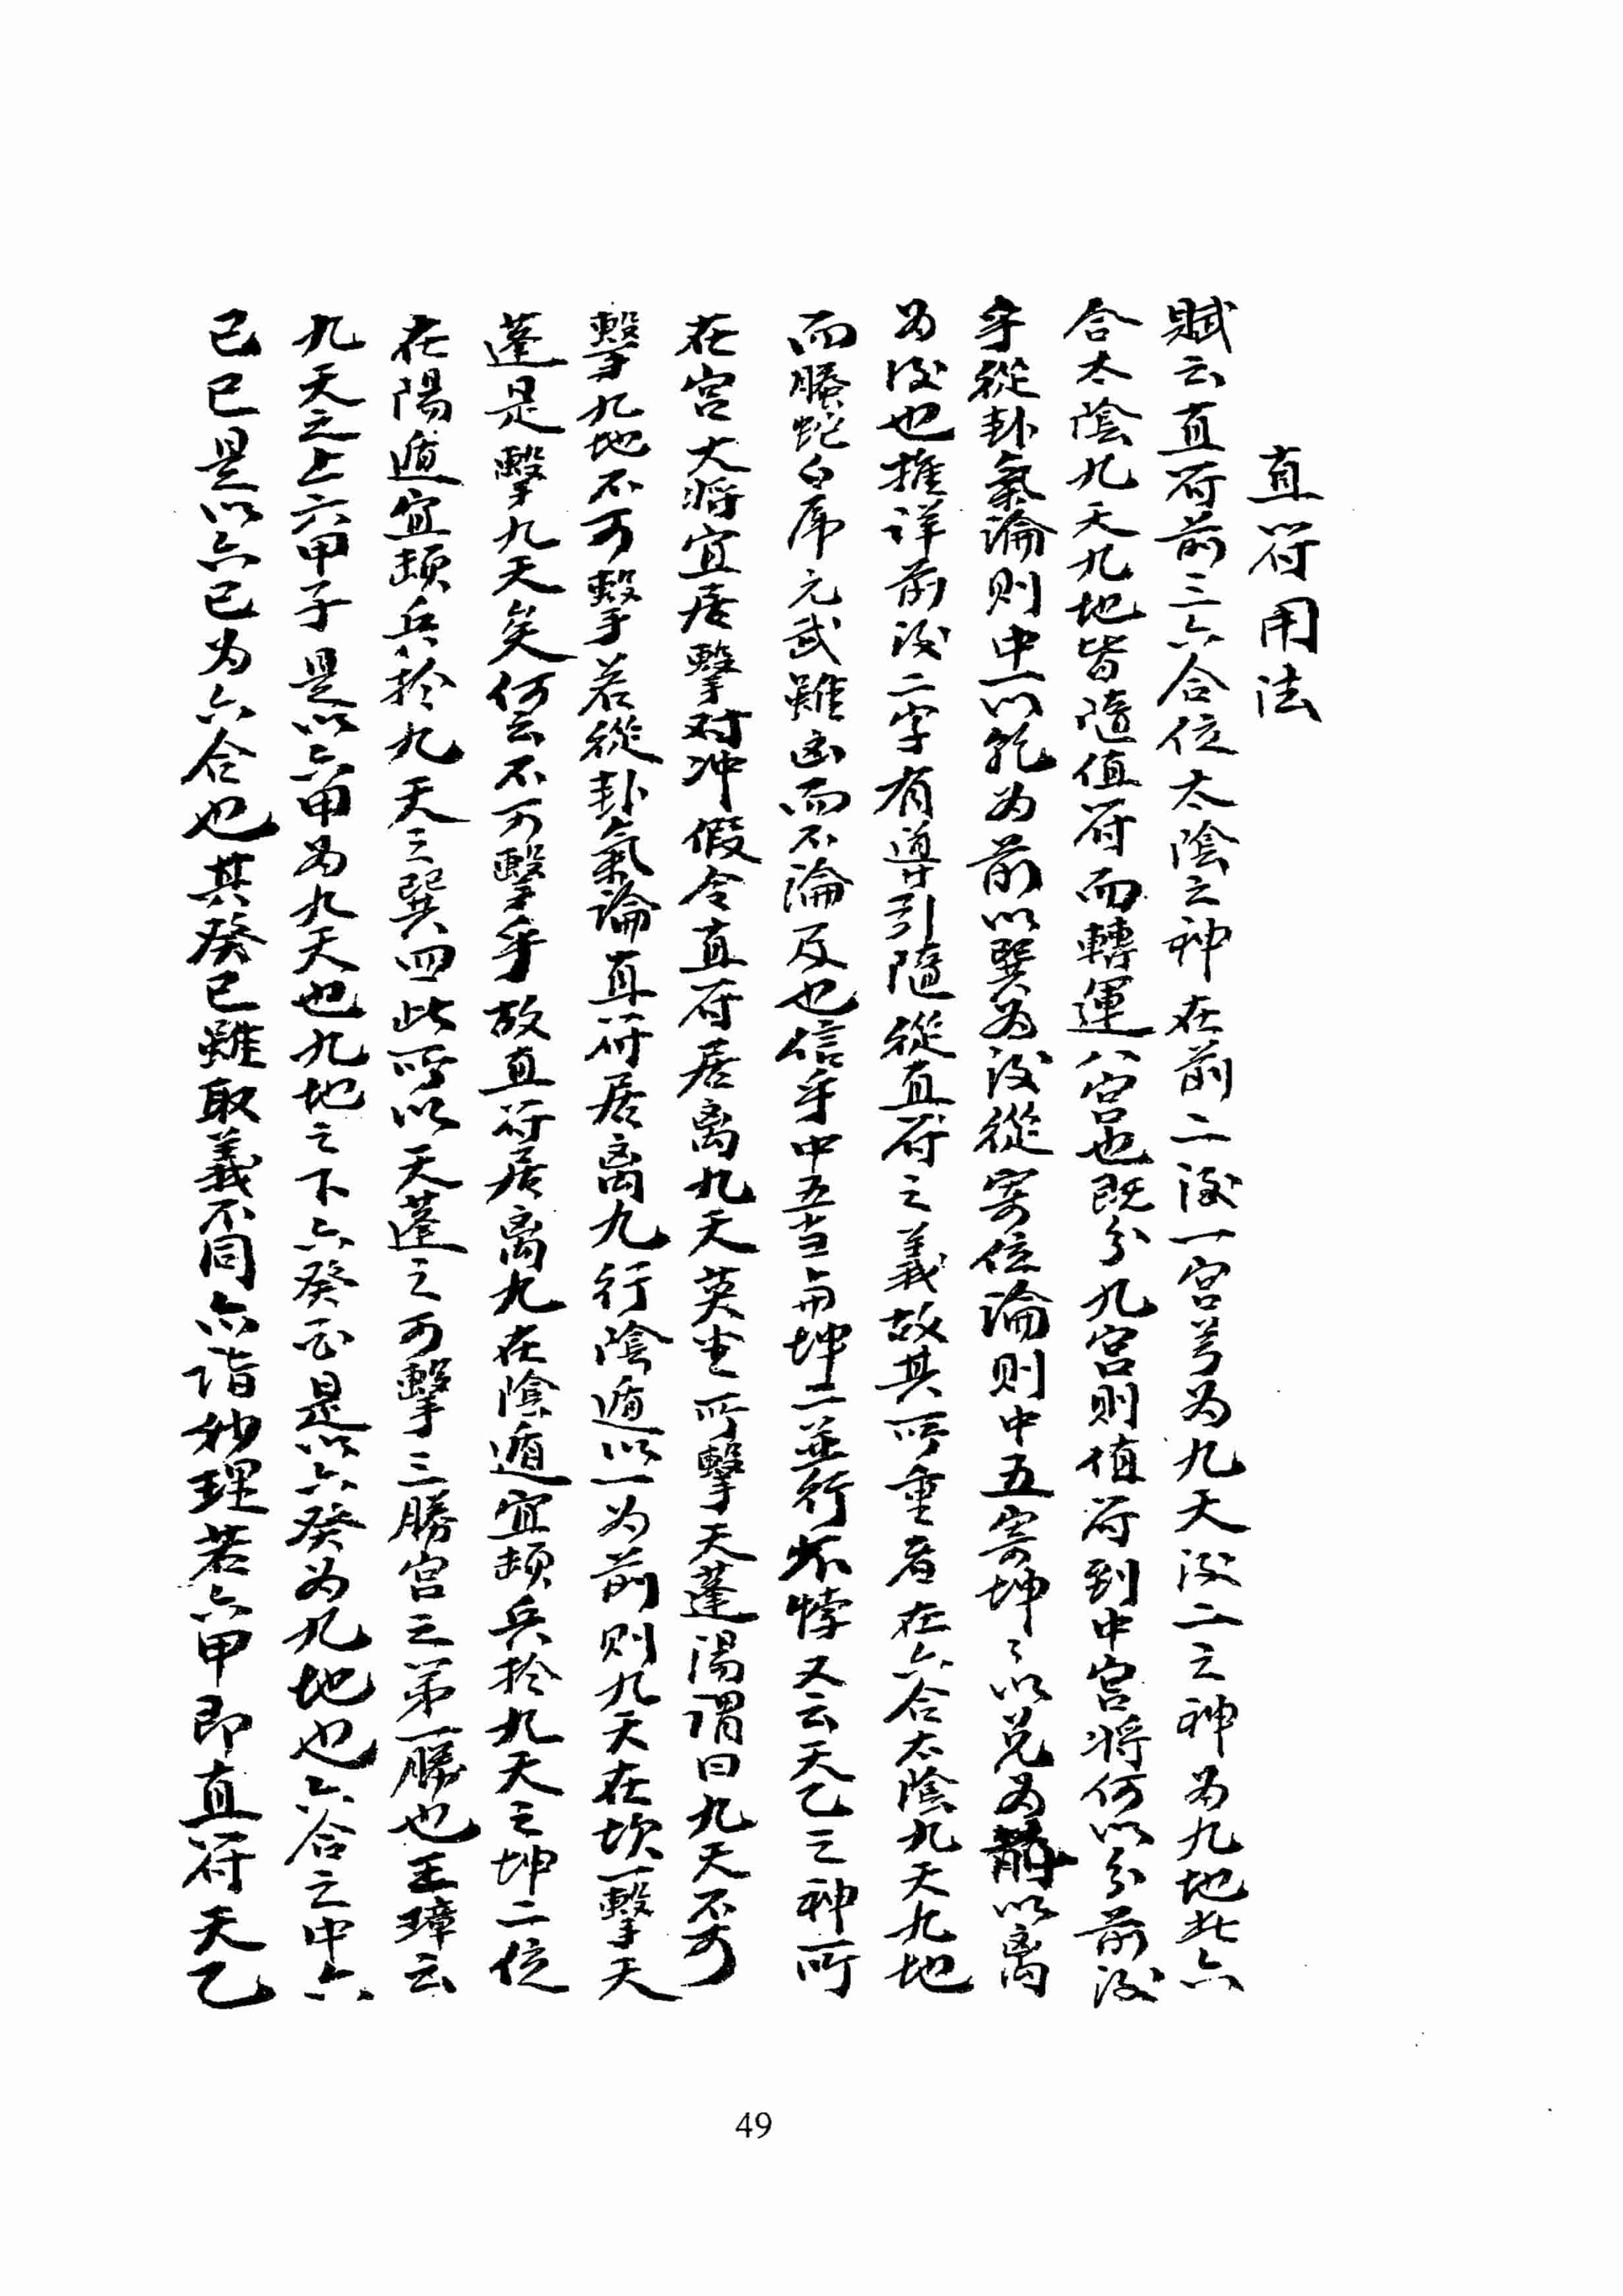 直符用法
賦云直符前三六合位太陰之神在前二後一宮兮为九天後二之神为九地此六
合太陰九天九地皆隨值符而轉運八宮也既分九宮则值符到中宮将何以分前後
乎從卦氣論则中一以乾为前以巽为後從寄位論则中五寄坤〻以兑为前以离
为後也推详前後二字有導引隨從直符之義故其所重者在六合太陰九天九地
而螣蛇白虎元武雖凶而不論及也信乎中五当与坤二並行不悖又云天乙之神所
在宮大将宜居擊对冲假令直符居离九天英坐所擊天蓬湯謂曰九天不可
擊九地不可擊若從卦氣論直符居离九行陰遁以一为前则九天在坎一擊天
蓬是擊九天矣何云不可擊乎故直符居离九在陰遁宜頓兵扵九天之坤二位
在陽遁宜頓兵扵九天之巽四此所以天蓬之可擊三勝宮之第一勝也王璋云
九天之上六甲子是以六甲为九天也九地之下六癸酉是以六癸为九地也六合之中六
己巳是以六己为六合也其癸巳雖取義不同六诣妙理若六甲即直符天乙
49